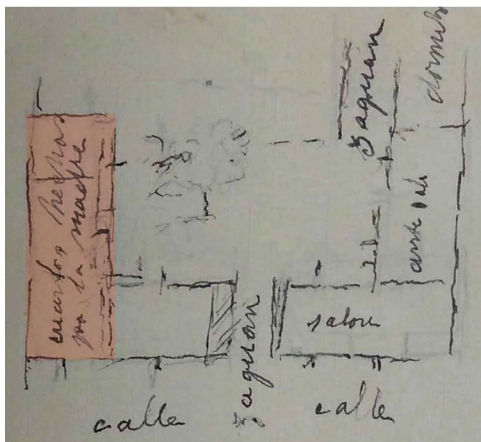 cuartos hechos
por la madre
zaguan
dormit
antesala
salon
zaguan
calle
calle